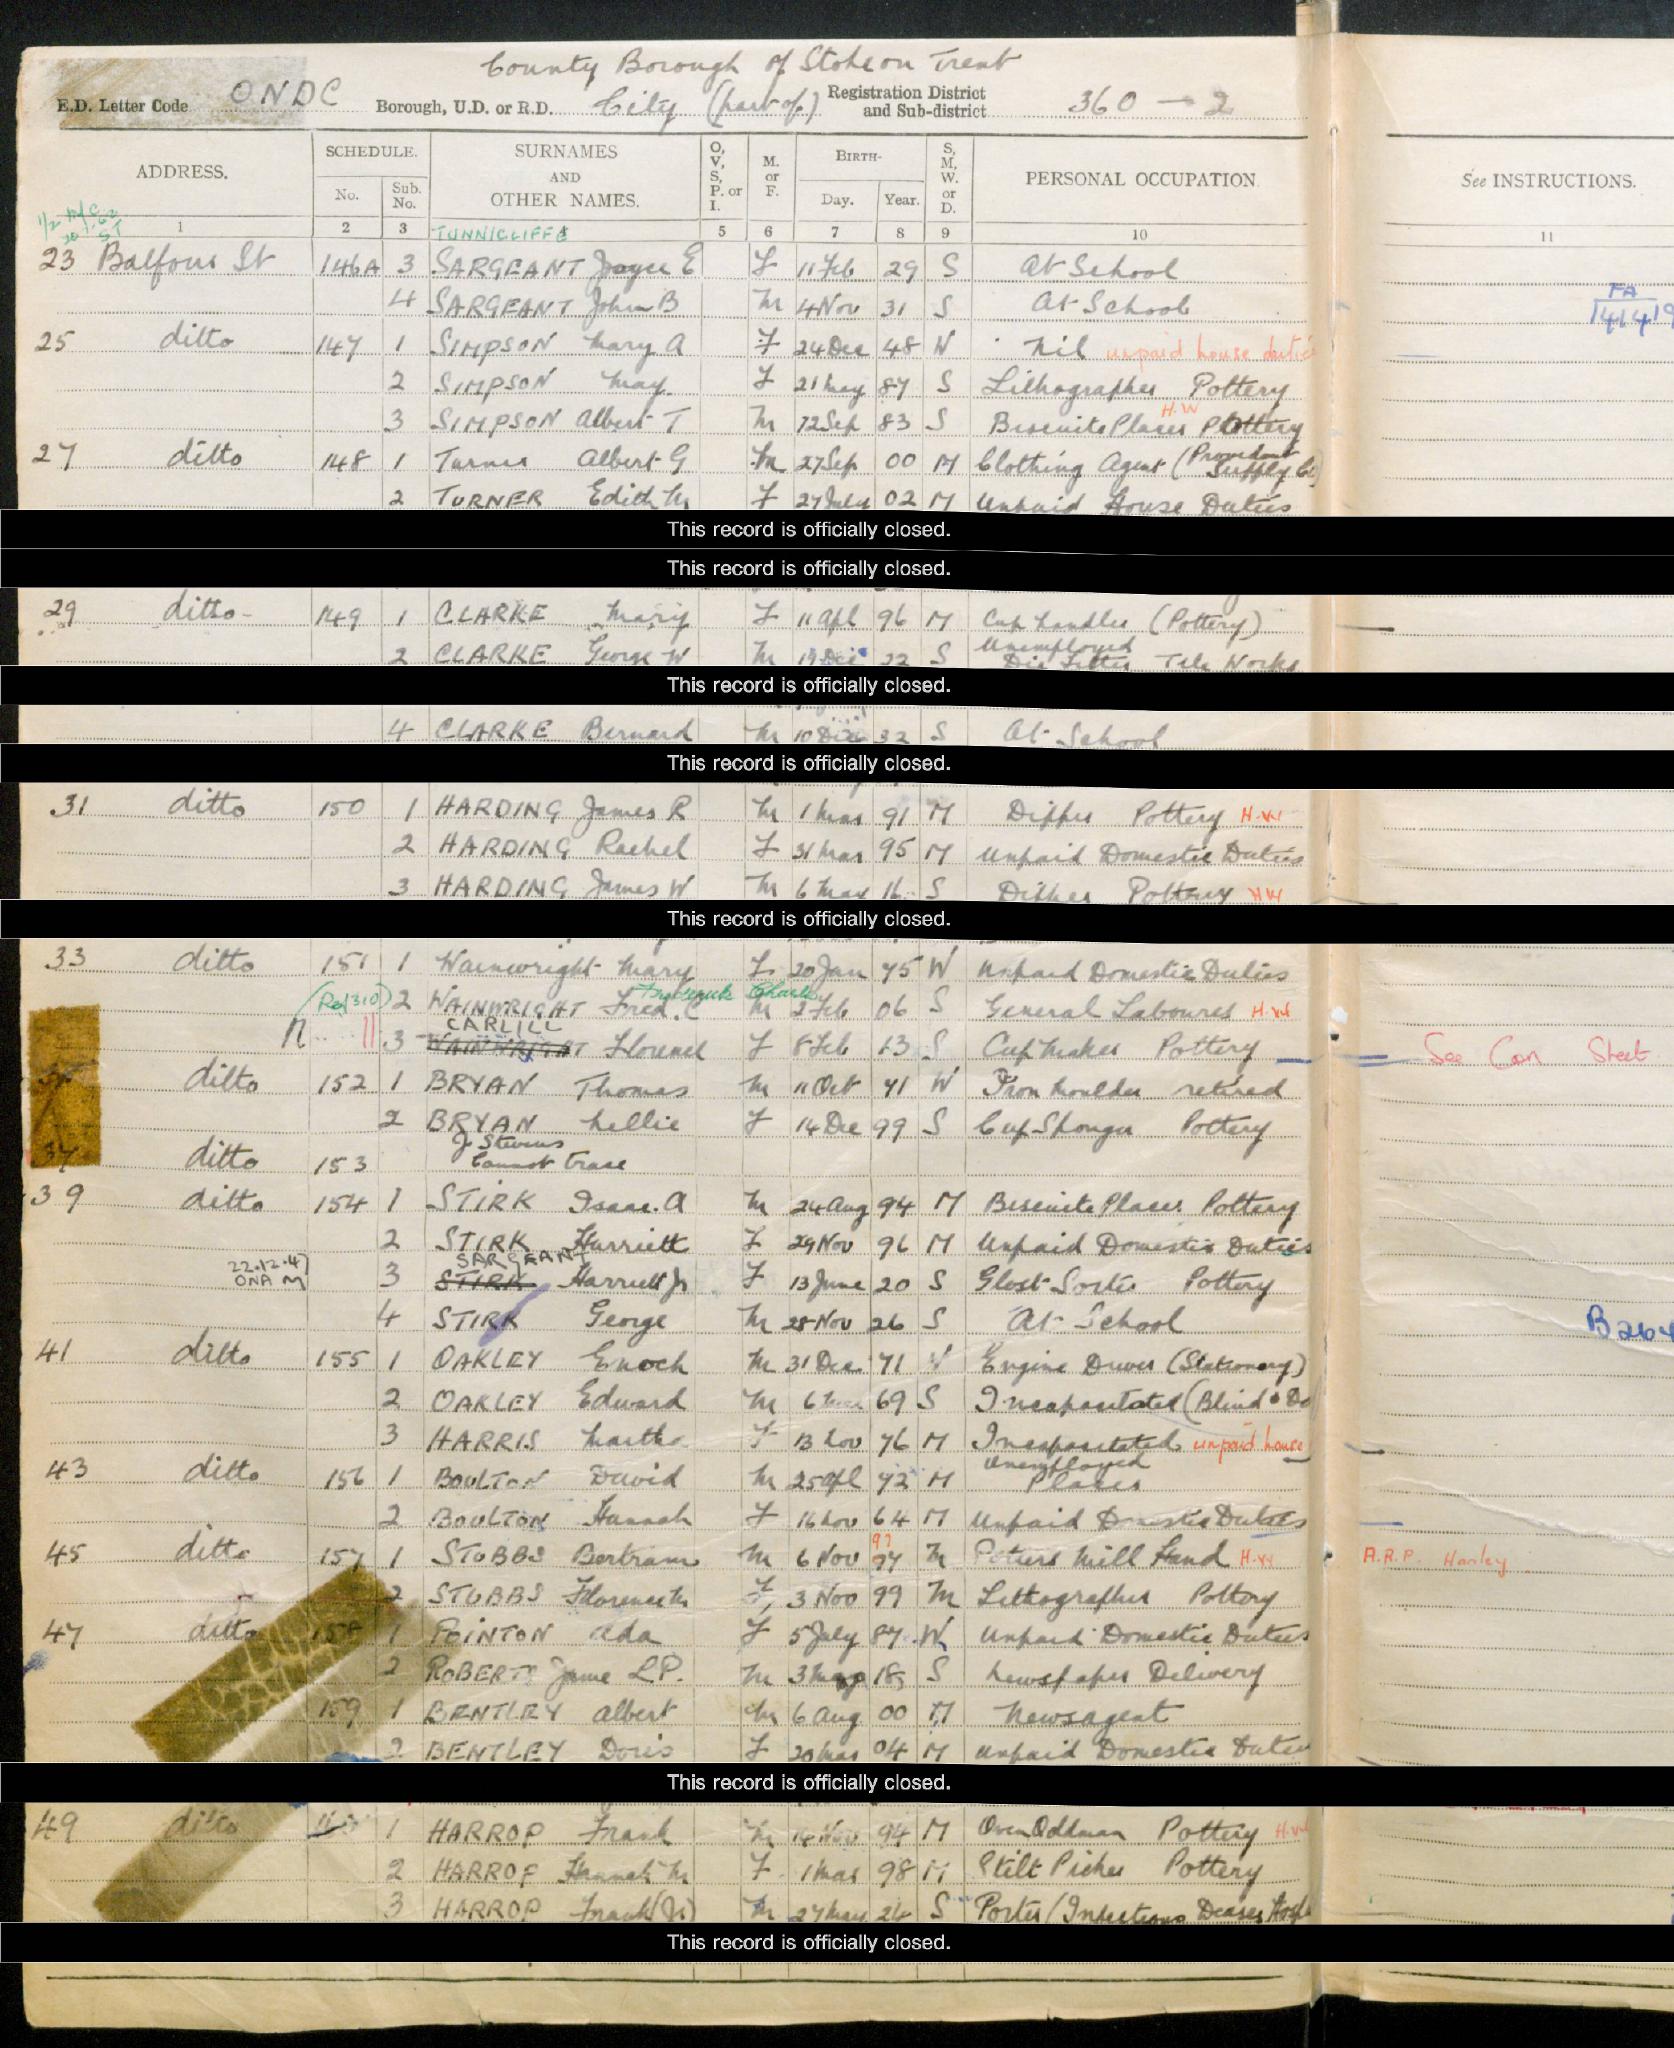 County Borough of Stoke on Trent
E.D. Letter Code ONDC Borough, U.D. or R.D. City (part of) Registration District and Sub-district 360 - 2
ADDRESS. SCHEDULE. No. Sub. No. SURNAMES AND OTHER NAMES. O, V, S, P. or I. M. or F. BIRTH- Day. Year. S, M, W. or D. PERSONAL OCCUPATION See INSTRUCTIONS.
1 2 3 5 6 7 8 9 10 11
TUNNICLIFFE
23 Balfour St 146A 3 SARGEANT Joyce E F 11 Feb 29 S At School
4 SARGEANT John B M 4 Nov 31 S At School
FA
25 ditto 147 1 SIMPSON Mary A F 24 Dec 48 W Nil unpaid house duties
2 SIMPSON May F 21 May 87 S Lithographer Pottery
H.W
3 SIMPSON Albert T M 12 Sep 83 S Biscuite Placer Pottery
27 ditto 148 1 Turner Albert G M 27 Sep 00 M Clothing Agent (Provident Supply Co)
2 TURNER Edith M F 27 July 02 M Unpaid House Duties
This record is officially closed.
This record is officially closed.
29 ditto 149 1 CLARKE Mary F 11 Apl 96 M Cup Handler (Pottery)
Unemployed
2 CLARKE George W M 19 Dec 22 S Die Fitter Tile Works
This record is officially closed.
4 CLARKE Bernard M 10 Dec 32 S At School
This record is officially closed.
31 ditto 150 1 HARDING James R M 1 Mar 91 M Dipper Pottery H.W
2 HARDING Rachel F 31 Mar 95 M Unpaid Domestic Duties
3 HARDING James W M 6 Mar 16 S Dipper Pottery HW
This record is officially closed.
33 ditto 151 1 Wainwright Mary F 20 Jan 75 W Unpaid Domestic Duties
Frederick Charles
(Ref 310) 2 WAINWRIGHT Fred. C M 2 Feb 06 S General Labourer H.W
CARLILL
3 WAINWRIGHT Florence F 8 Feb 13 S Cup Maker Pottery See Con Sheet
ditto 152 1 BRYAN Thomas M 11 Oct 71 W Iron Moulder retired
2 BRYAN Nellie F 14 Dec 99 S Cup Sponger Pottery
J Stevens
37 ditto 153 Cannot trace
39 ditto 154 1 STIRK Isaac. A M 24 Aug 94 M Biscuite Placer Pottery
2 STIRK Harriett F 29 Nov 96 M Unpaid Domestic Duties
22.12.47 SARGEANT
ONA M 3 STIRK Harriett Jr F 13 June 20 S Glost Sorter Pottery
4 STIRK George M 28 Nov 26 S At School
41 ditto 155 1 OAKLEY Enoch M 31 Dec 71 W Engine Driver (Stationary)
2 OAKLEY Edward M 6 69 S Incapacitated (Blind &
3 HARRIS Martha F 13 Nov 76 M Incapacitated unpaid house
Unemployed
43 ditto 156 1 BOULTON David M 25 Apl 72 M Placer
2 BOULTON Hannah F 16 Nov 64 M Unpaid Domestic Duties
97
45 ditto 157 1 STUBBS Bertram M 6 Nov 97 M Potters Mill Hand H.W A.R.P. Hanley
2 STUBBS Florence M F 3 Nov 99 M Lithographer Pottery
47 ditto 158 1 POINTON Ada F 5 July 87 W Unpaid Domestic Duties
2 ROBERTS Jame L.P. M 3 May 18 S Newspaper Delivery
159 1 BENTLEY Albert M 6 Aug 00 M Newsagent
2 BENTLEY Doris F 20 Mar 04 M Unpaid Domestic Duties
This record is officially closed.
49 ditto 1 HARROP Frank M 14 Nov 94 M Oven Oddman Pottery H.W
2 HARROP Hannah M F 1 Mar 98 M Stilt Picker Pottery
3 HARROP Frank (Jr) M 27 May 24 S Porter (Infectious Deases Hosp
This record is officially closed.